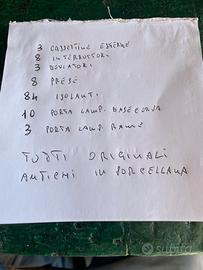 3 CASSETTINE ESTERNE
8 INTERRUTTORI
3 DEVIATORI
8 PRESE
84 ISOLANTI
10 PORTA LAMP. BASE CURVA
3 PORTA LAMP. RAME
TUTTI ORIGINALI
ANTICHI IN PORCELLANA
Subito